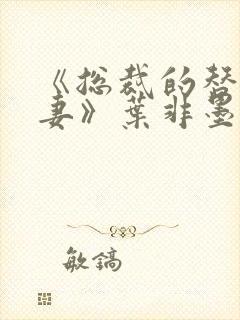 《总裁的替
妻》葉非墨
敏鎬